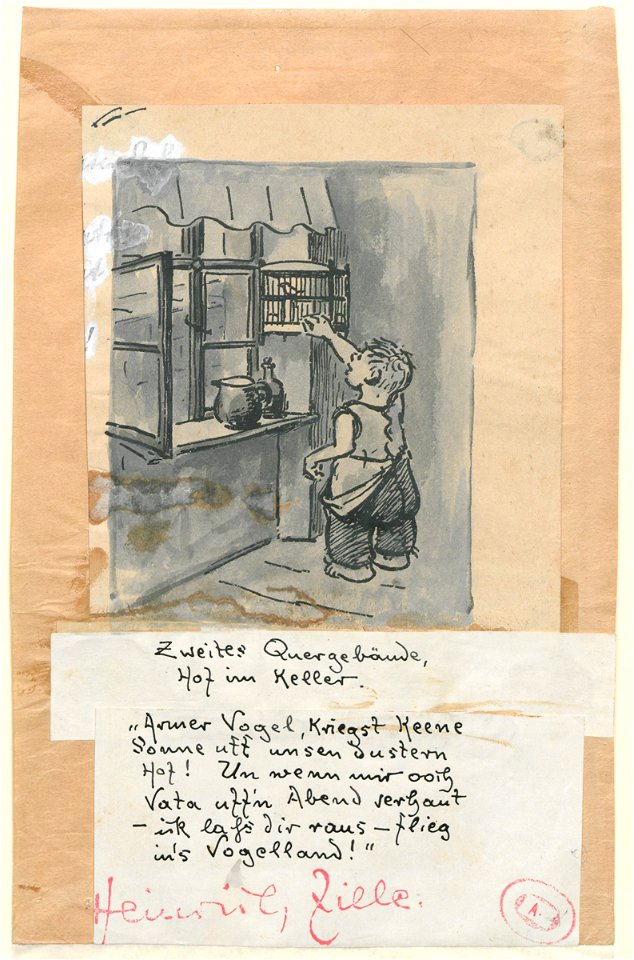 Zweites Quergebäude,
Hof im Keller.
„Armer Vogel, Kriegst Keene
Sonne uff unsen dustern
Hof! Un wenn mir ooch
Vata uff'n Abend verhaut
– ick lass dir raus – flieg
in's Vogelland!"
Heinrich Zille.
A.